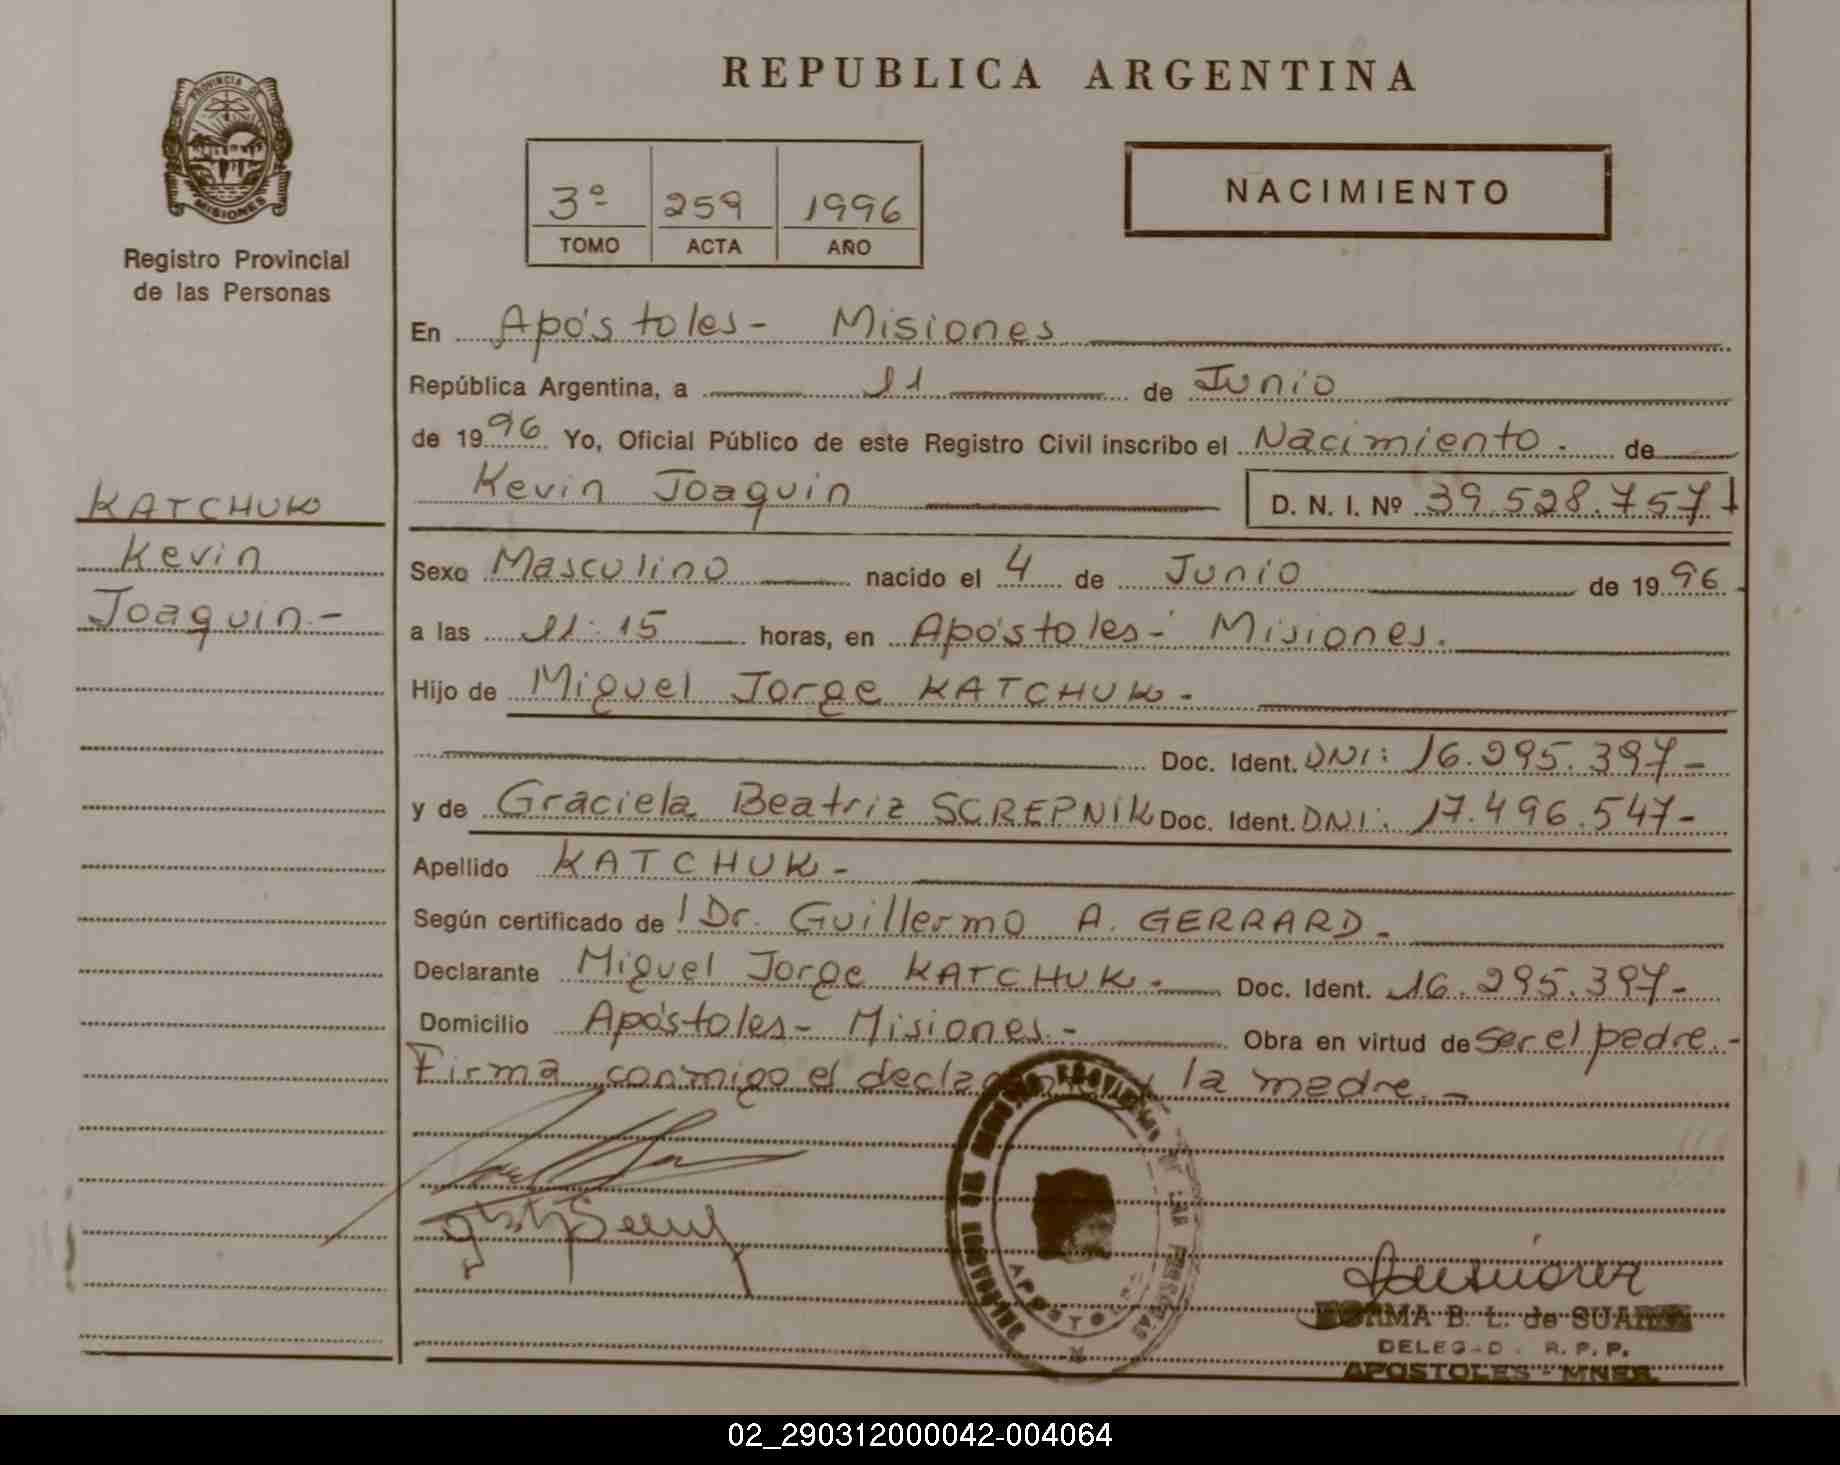 REPUBLICA ARGENTINA
PROVINCIA DE
MISIONES
Registro Provincial
de las Personas
3º 259 1996
TOMO ACTA AÑO
NACIMIENTO
En Apóstoles - Misiones
República Argentina, a 11 de Junio
de 1996 Yo, Oficial Público de este Registro Civil inscribo el Nacimiento. de
Kevin Joaquin D. N. I. Nº 39.528.757
KATCHUK
Kevin
Joaquin.-
Sexo Masculino nacido el 4 de Junio de 1996
a las 11:15 horas, en Apóstoles - Misiones.
Hijo de Miguel Jorge KATCHUK -
Doc. Ident. DNI: 16.295.397-
y de Graciela Beatriz SCREPNIK Doc. Ident. DNI: 17.496.547-
Apellido KATCHUK -
Según certificado de Dr. Guillermo A. GERRARD -
Declarante Miguel Jorge KATCHUK - Doc. Ident. 16.295.397-
Domicilio Apóstoles - Misiones.- Obra en virtud de ser el padre.-
Firma conmigo el declarante y la madre.-
APOSTOLES
NORMA B. L. de SUAREZ
DELEGAD. R. P. P.
APOSTOLES - MNES.
02_290312000042-004064